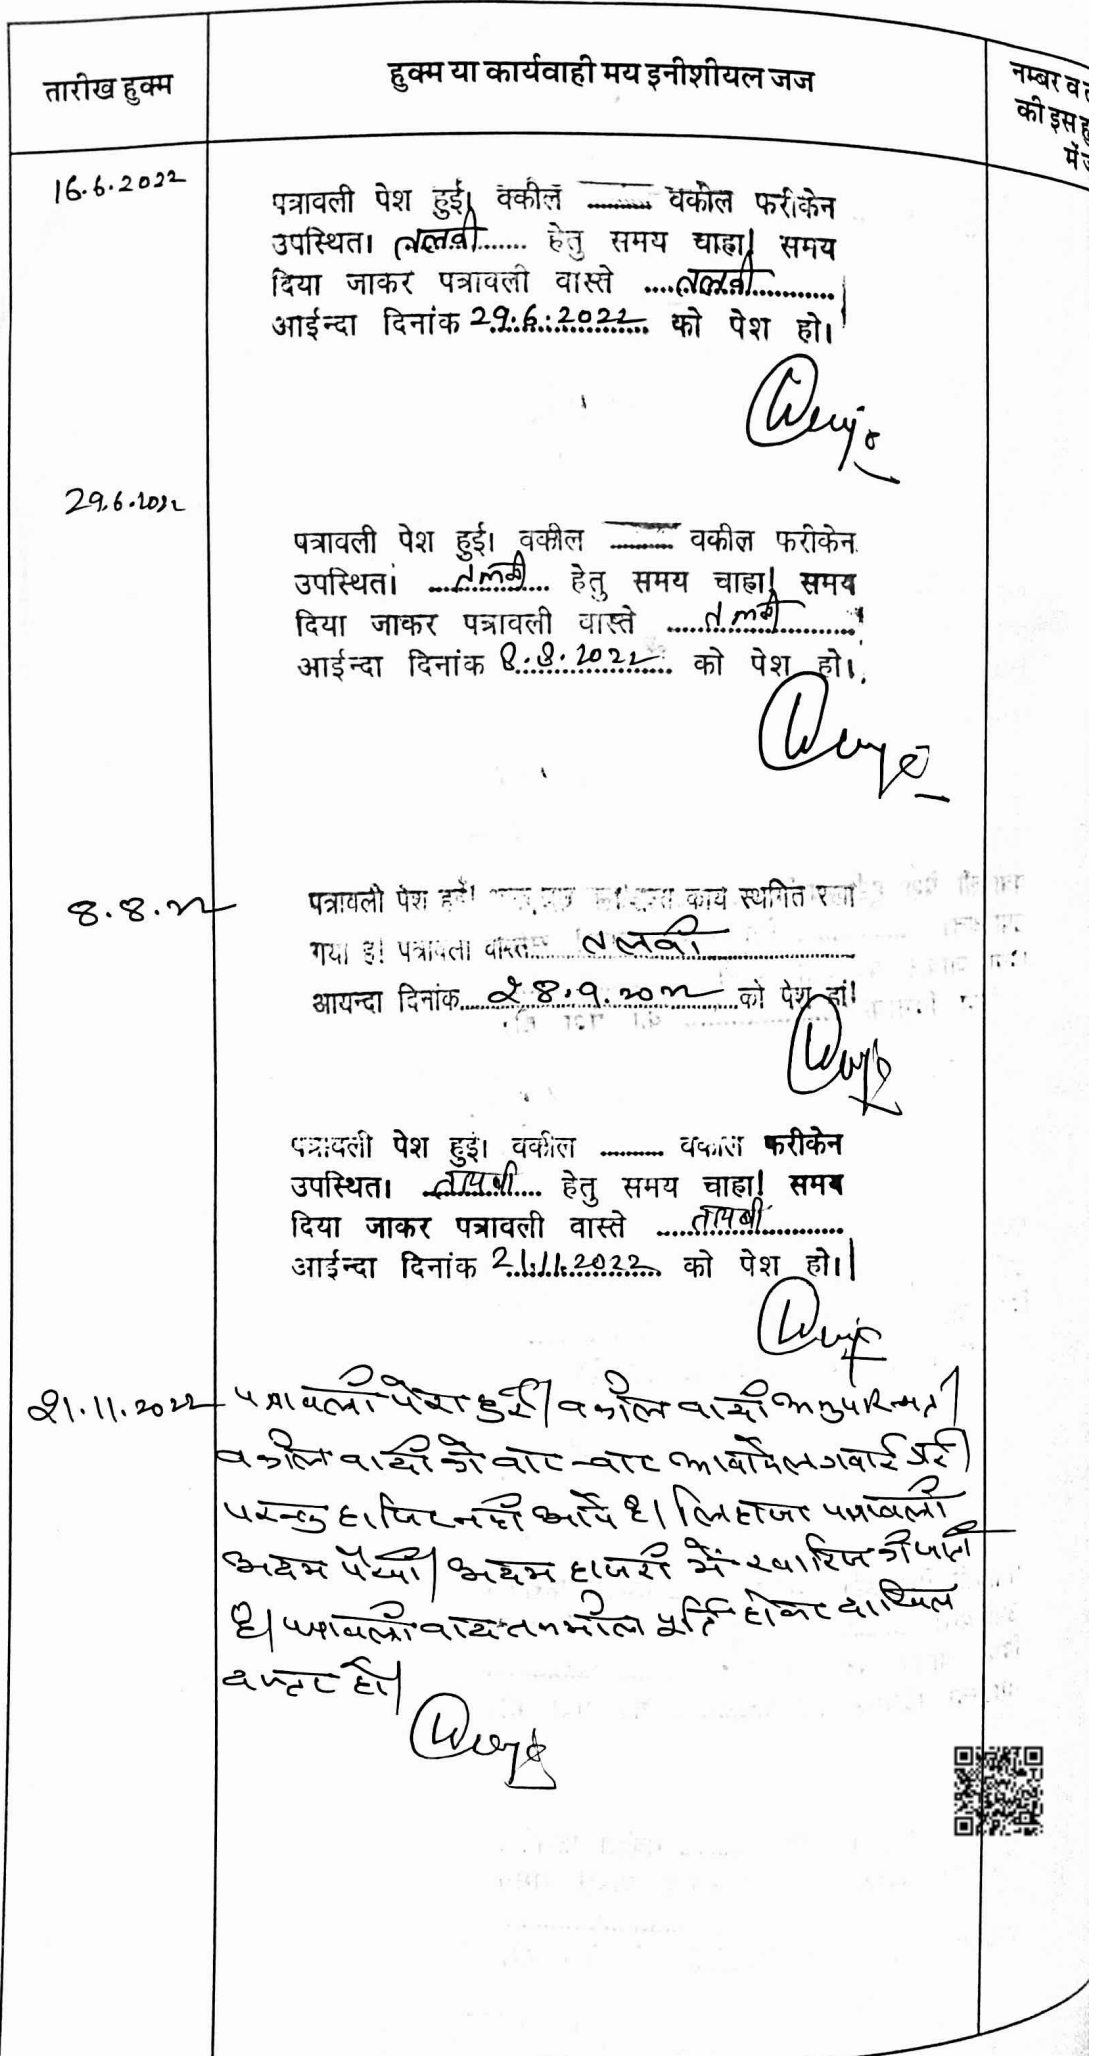 तारीख हुक्म
हुक्म या कार्यवाही मय इनीशीयल जज
नम्बर व
की इस
में
16.6.2022
पत्रावली पेश हुई। वकील ......... वकील फरीकेन
उपस्थित। तलबी ...... हेतु समय चाहा! समय
दिया जाकर पत्रावली वास्ते ....तलबी............
आईन्दा दिनांक 29.6.2022 को पेश हो।
29.6.2022
पत्रावली पेश हुई। वकील ......... वकील फरीकेन
उपस्थित। ...तलबी... हेतु समय चाहा! समय
दिया जाकर पत्रावली वास्ते .....तलबी..........
आईन्दा दिनांक 8.8.2022 को पेश हो।
8.8.22
पत्रावली पेश हुई! कार्य स्थगित रखा
गया है! पत्रावली वास्ते..... तलबी ..................
आयन्दा दिनांक... 28.9.2022 ...को पेश हो!
पत्रावली पेश हुई। वकील ......... वकील फरीकेन
उपस्थित। ...तलबी... हेतु समय चाहा! समय
दिया जाकर पत्रावली वास्ते ....तलबी.........
आईन्दा दिनांक 21.11.2022 को पेश हो।
21.11.2022
पत्रावली पेश हुई। वकील वादी अनुपस्थित।
वकील वादी को बार-बार आवाजे लगवाई गई।
परन्तु हाजिर नही आये है। लिहाजा पत्रावली
अदम पैरवी। अदम हाजरी में खारिज की जाती
है। पत्रावली बाद तकमील पूर्ति होकर दाखिल
दफ्तर हो।